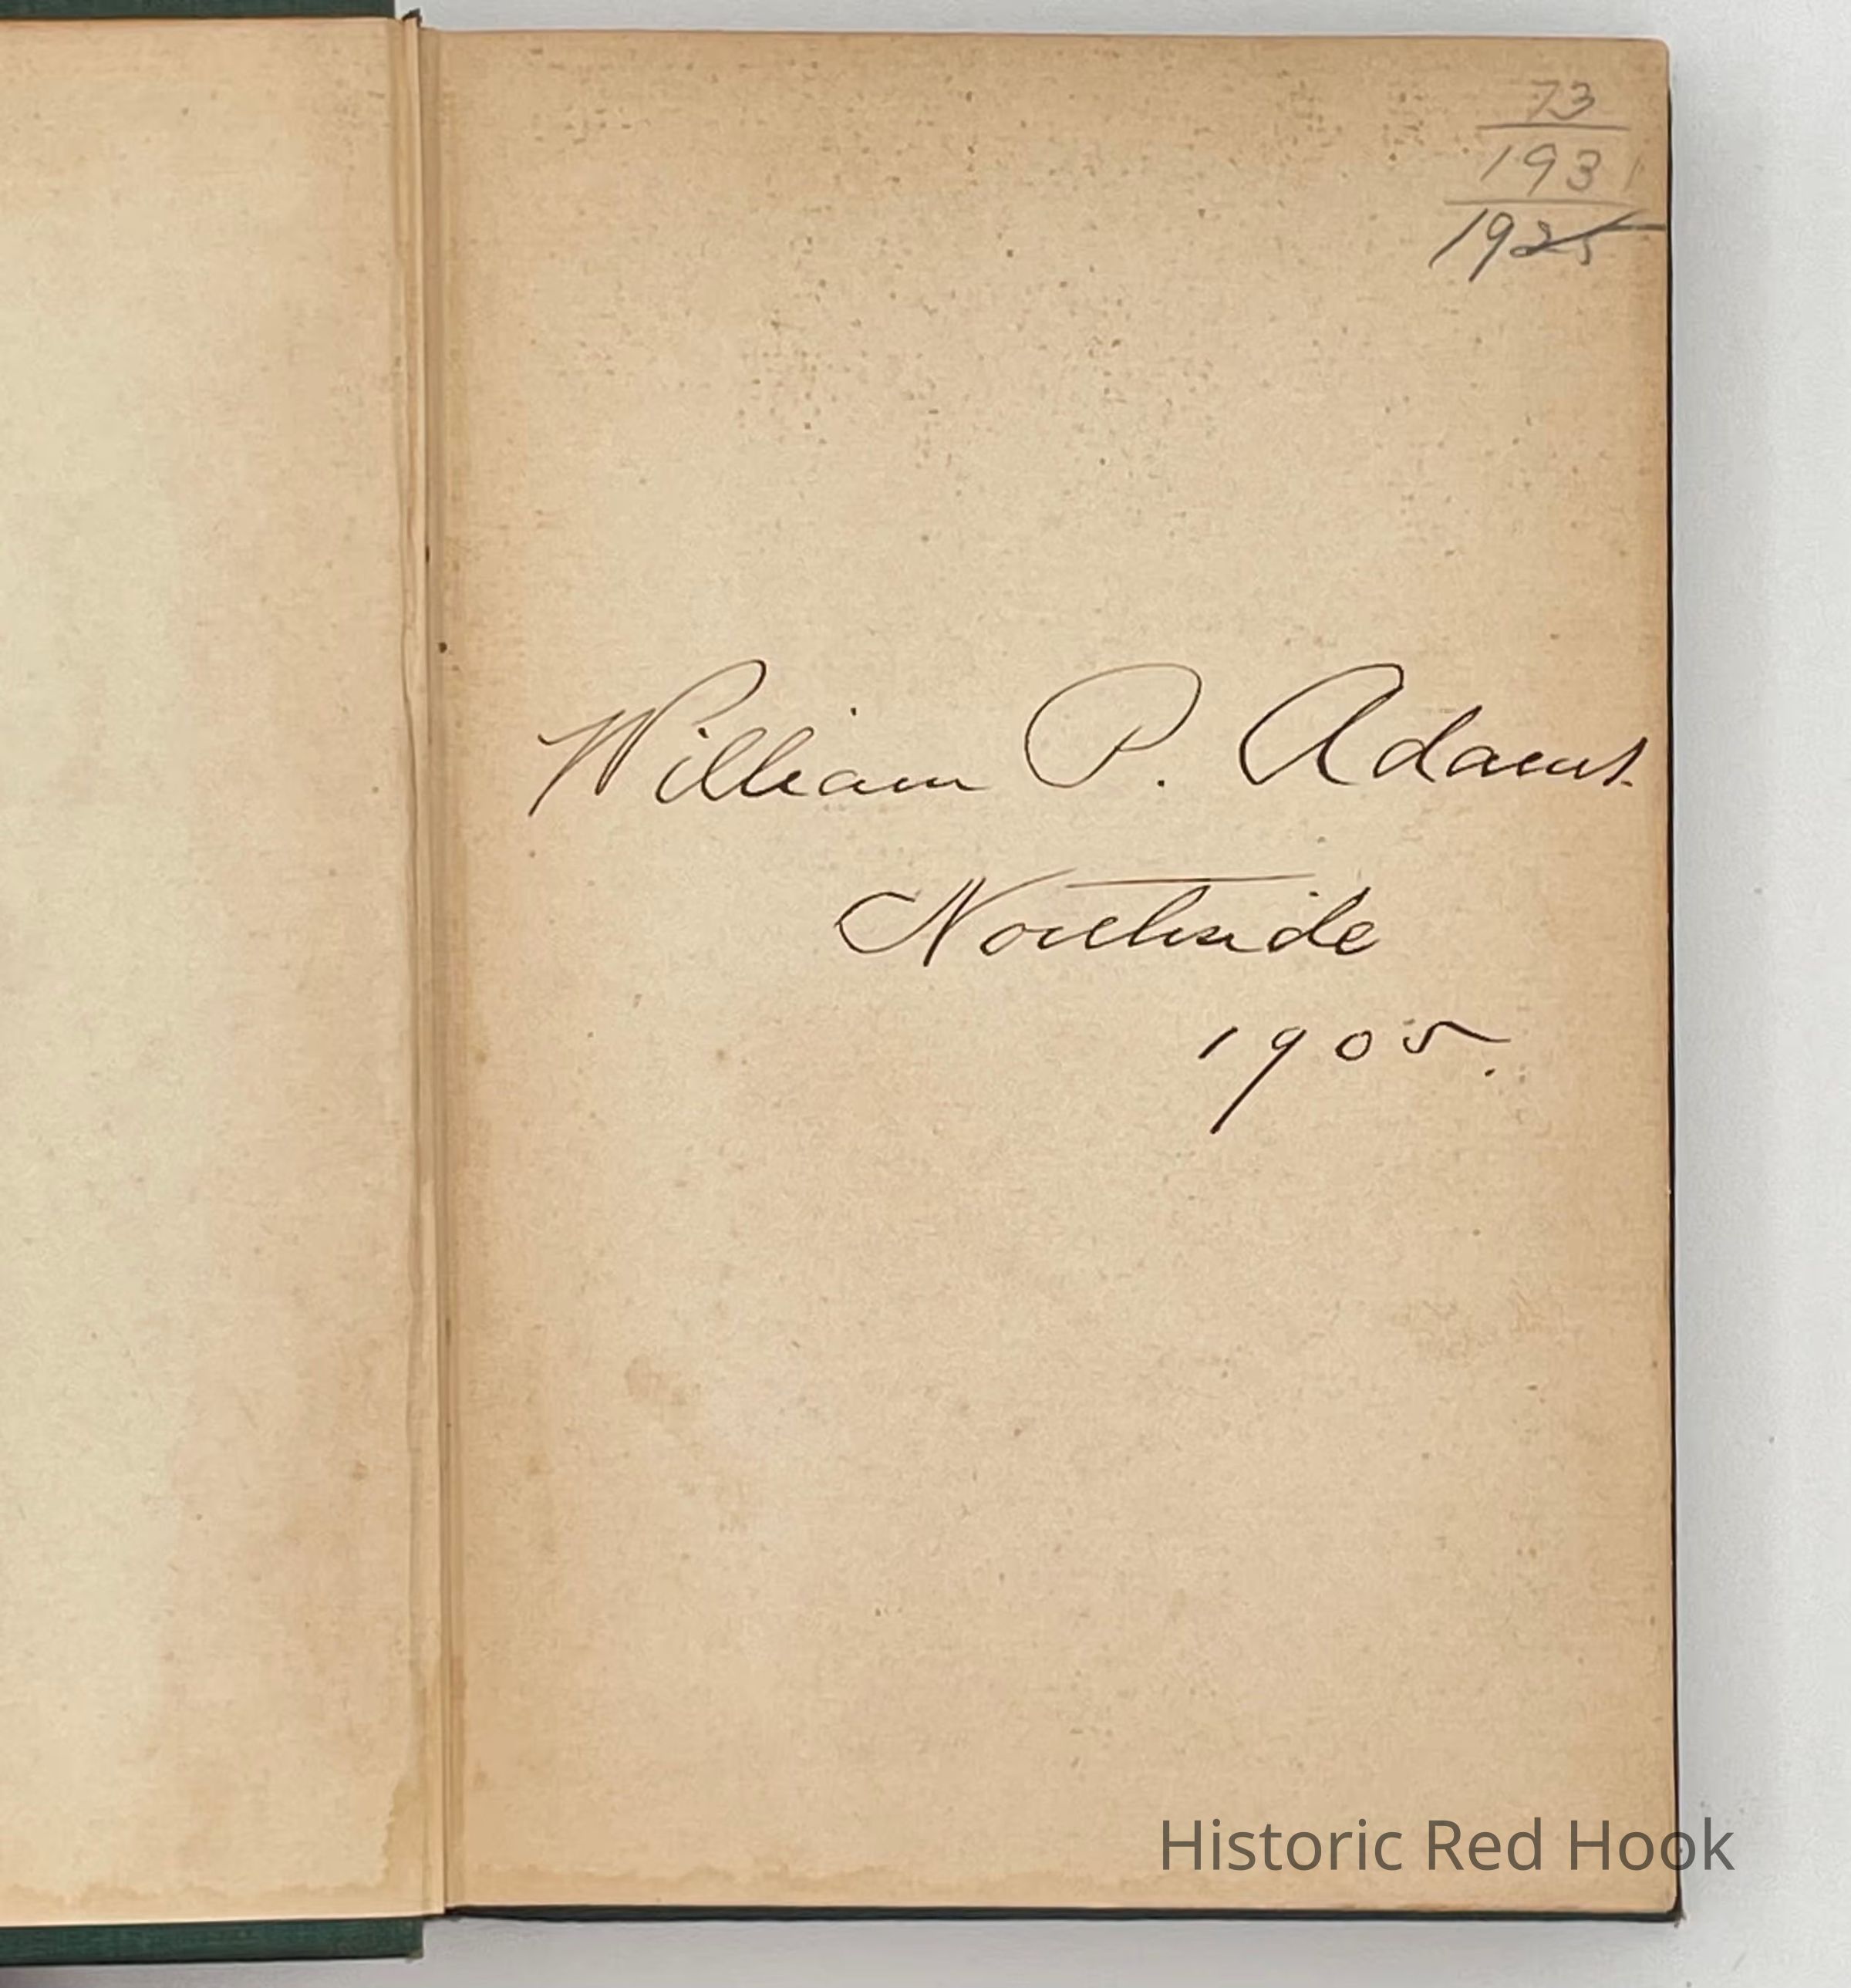 73
1931
1925
William P. Adams.
Northside
1905.
Historic Red Hook